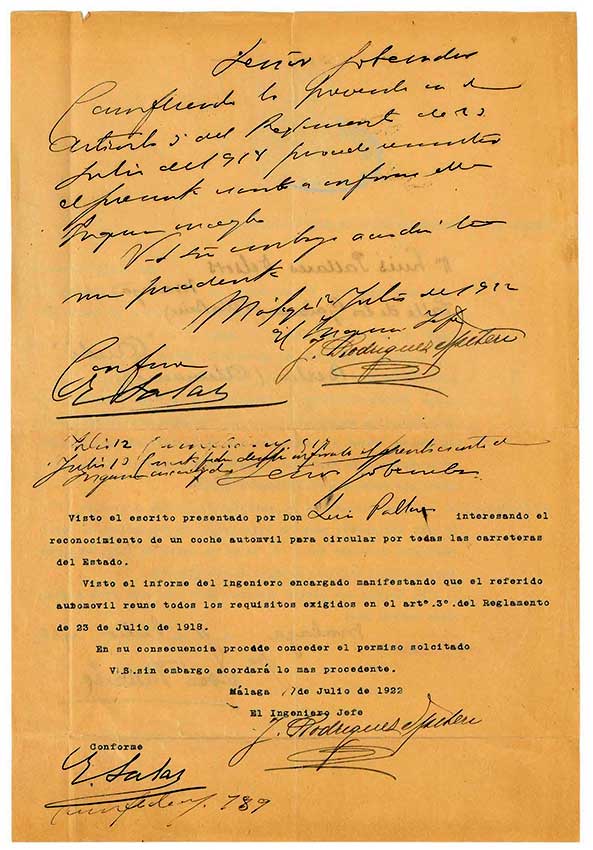 Señor Gobernador
Cumpliendo lo prevenido en el
Artículo 5 del Reglamento de 23
Julio del 1918 procede
el presente a informe del
Ingeniero
V.S. sin embargo acordará lo
mas procedente
Málaga 12 Julio de 1922
El Ingeniero Jefe
J. Rodriguez Spiteri
Conforme
E. Salas
Julio 12
Julio 13
Ingeniero encargado Señor Gobernador
Visto el escrito presentado por Don Luis Pallares interesando el
reconocimiento de un coche automvil para circular por todas las carreteras
del Estado.
Visto el informe del Ingeniero encargado manifestando que el referido
automovil reune todos los requisitos exigidos en el artº.3º.del Reglamento
de 23 de Julio de 1918.
En su consecuencia procede conceder el permiso solcitado
V.S.sin embargo acordará lo mas procedente.
Málaga de Julio de 1922
El Ingeniero Jefe
J. Rodriguez Spiteri
Conforme
E. Salas
789